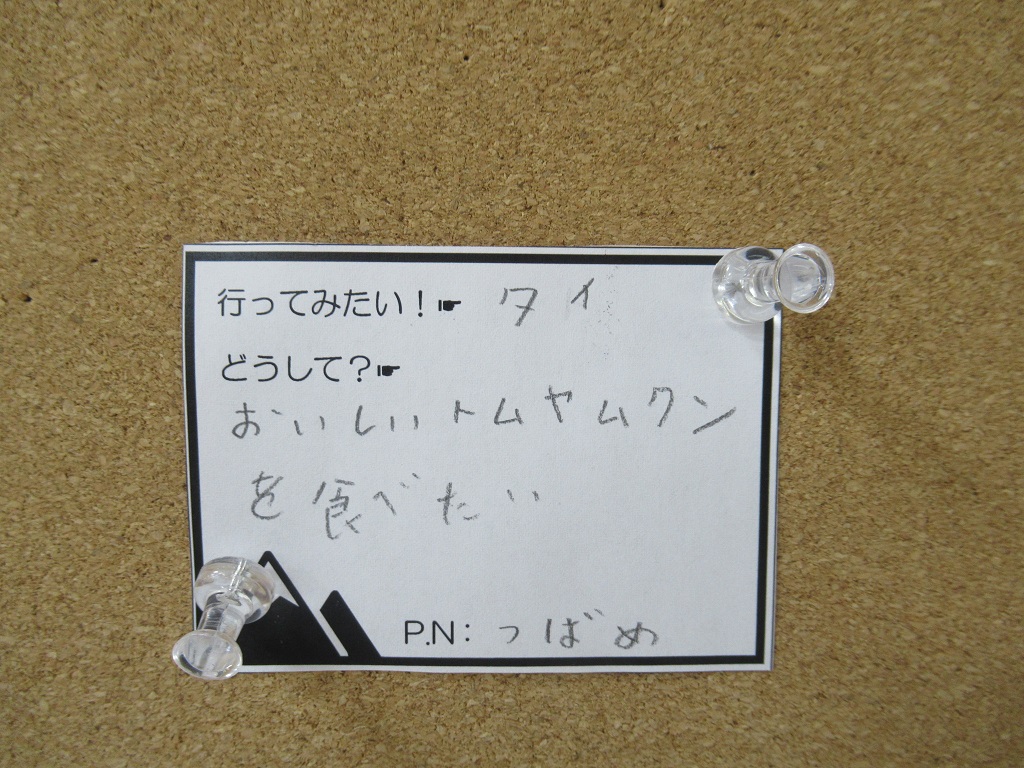 行ってみたい！☛ タイ
どうして？☛
おいしいトムヤムクン
を食べたい
P.N：つばめ